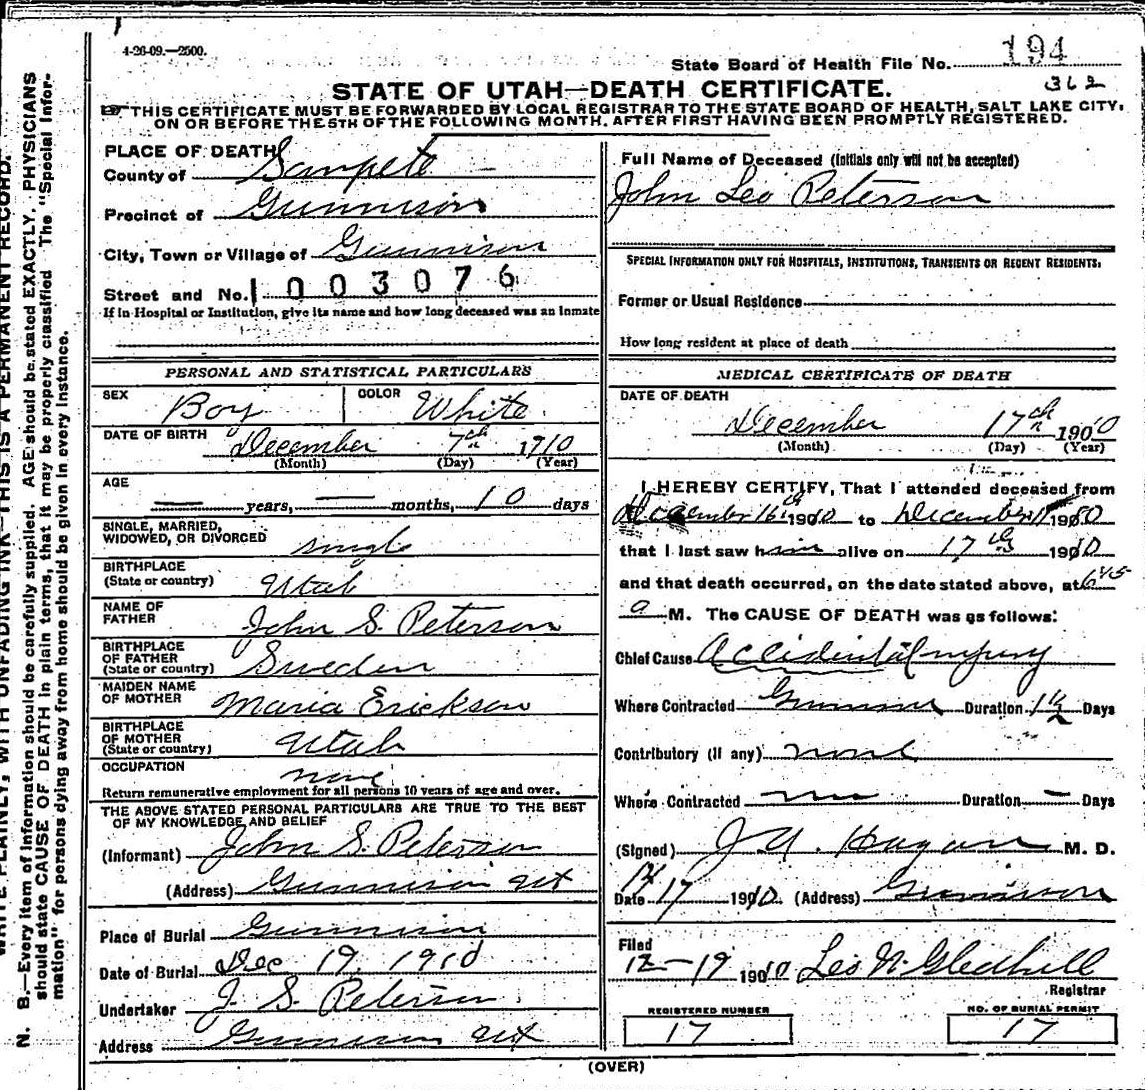 4-26-09.—2500.
State Board of Health File No. 194
362
STATE OF UTAH—DEATH CERTIFICATE.
THIS CERTIFICATE MUST BE FORWARDED BY LOCAL REGISTRAR TO THE STATE BOARD OF HEALTH, SALT LAKE CITY,
ON OR BEFORE THE 5TH OF THE FOLLOWING MONTH, AFTER FIRST HAVING BEEN PROMPTLY REGISTERED.
PLACE OF DEATH
County of Sanpete
Precinct of Gunnison
City, Town or Village of Gunnison
Street and No. 1003076
If in Hospital or Institution, give its name and how long deceased was an Inmate
PERSONAL AND STATISTICAL PARTICULARS
SEX Boy COLOR White
DATE OF BIRTH December 7th 1910
(Month) (Day) (Year)
AGE — years, — months, 10 days
SINGLE, MARRIED,
WIDOWED, OR DIVORCED single
BIRTHPLACE
(State or country) Utah
NAME OF
FATHER John S. Peterson
BIRTHPLACE
OF FATHER
(State or country) Sweden
MAIDEN NAME
OF MOTHER Maria Erickson
BIRTHPLACE
OF MOTHER
(State or country) Utah
OCCUPATION none
Return remunerative employment for all persons 10 years of age and over.
THE ABOVE STATED PERSONAL PARTICULARS ARE TRUE TO THE BEST
OF MY KNOWLEDGE AND BELIEF
(Informant) John S. Peterson
(Address) Gunnison Ut
Place of Burial Gunnison
Date of Burial Dec 19, 1910
Undertaker J. S. Peterson
Address Gunnison Ut
Full Name of Deceased (initials only will not be accepted)
John Leo Peterson
SPECIAL INFORMATION ONLY FOR HOSPITALS, INSTITUTIONS, TRANSIENTS OR RECENT RESIDENTS.
Former or Usual Residence
How long resident at place of death
MEDICAL CERTIFICATE OF DEATH
DATE OF DEATH
December 17th 1910
(Month) (Day) (Year)
I HEREBY CERTIFY, That I attended deceased from
December 16th 1910 to December 17 1910
that I last saw him alive on 17th 1910
and that death occurred, on the date stated above, at 6:45
a M. The CAUSE OF DEATH was as follows:
Chief Cause Accidental Injury
Where Contracted Gunnison Duration 1½ Days
Contributory (if any) none
Where Contracted — Duration — Days
(Signed) J. A. Hagan M. D.
Date 12/17 1910. (Address) Gunnison
Filed
12-19 1910 Leo N. Gledhill
Registrar
REGISTERED NUMBER
17
NO. OF BURIAL PERMIT
17
(OVER)
WRITE PLAINLY, WITH UNFADING INK—THIS IS A PERMANENT RECORD.
N. B.—Every item of information should be carefully supplied. AGE should be stated EXACTLY. PHYSICIANS
should state CAUSE OF DEATH in plain terms, that it may be properly classified. The "Special Infor-
mation" for persons dying away from home should be given in every instance.